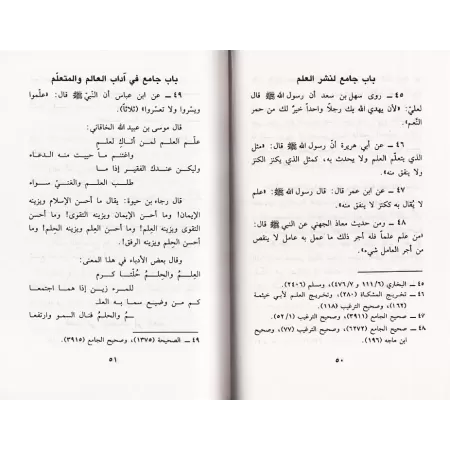 باب جامع لنشر العلم
٤٥ ــ روى سهل بن سعد أن رسول الله ﷺ قال
لعليّ: «لأن يهدي الله بك رجلاً واحداً خيرٌ لك من حمر
النَّعم».
٤٦ ــ عن أبي هريرة أنّ رسول الله ﷺ قال: «مثل
الذي يتعلّم العلم ولا يحدث به، كمثل الذي يكنز الكنز
ولا ينفق منه».
٤٧ ــ عن ابن عمر قال: قال رسول الله ﷺ: «علم
لا يُقال به ككنز لا يُنفق منه».
٤٨ ــ ومن حديث معاذ الجهني عن النبي ﷺ قال:
«من علم علماً فله أجر ذلك ما عمل به عامل لا ينقص
من أجر العامل شيء».
٤٥ ــ البخاري (١١١/٦ و ٤٧٦/٧)، ومسلم (٢٤٠٦).
٤٦ ــ تخريج المشكاة (٢٨٠)، وتخريج العلم لأبي خيثمة
(١٦٢)، وصحيح الترغيب (١١٨).
٤٧ ــ صحيح الجامع (٣٩١١)، وصحيح الترغيب (٥٢/١).
٤٨ ــ صحيح الجامع (٦٢٧٢)، وصحيح الترغيب (٧٧)، وصحيح
ابن ماجه (١٩٦).
٥٠
باب جامع في آداب العالم والمتعلّم
٤٩ ــ عن ابن عباس أن النّبيّ ﷺ قال: «علّموا
ويسّروا ولا تعسّروا» (ثلاثاً).
قال موسى بن عبيد الله الخاقاني:
علّم العلم لمن أتاك لعلم
واغتنم ما حييت منه الدعاء
وليكن عندك الفقير إذا ما
طلب العلم والغنيّ سواء
قال رجاء بن حيوة: يقال ما أحسن الإسلام ويزينه
الإيمان! وما أحسن الإيمان ويزينه التقوى! وما أحسن
التقوى ويزينها العلم! وما أحسن العِلم ويزينه الحلم! وما
أحسن الحلم ويزينه الرفق!.
وقال بعض الأدباء في هذا المعنى:
العِلمُ والحِلمُ حُلّتا كرم
للمرء زين إذا هما اجتمعا
كم من وضيع سما به العلـ
ـم والحلمُ فنال السمو وارتفعا
٤٩ ــ الصحيحة (١٣٧٥)، وصحيح الجامع (٣٩١٥)
٥١